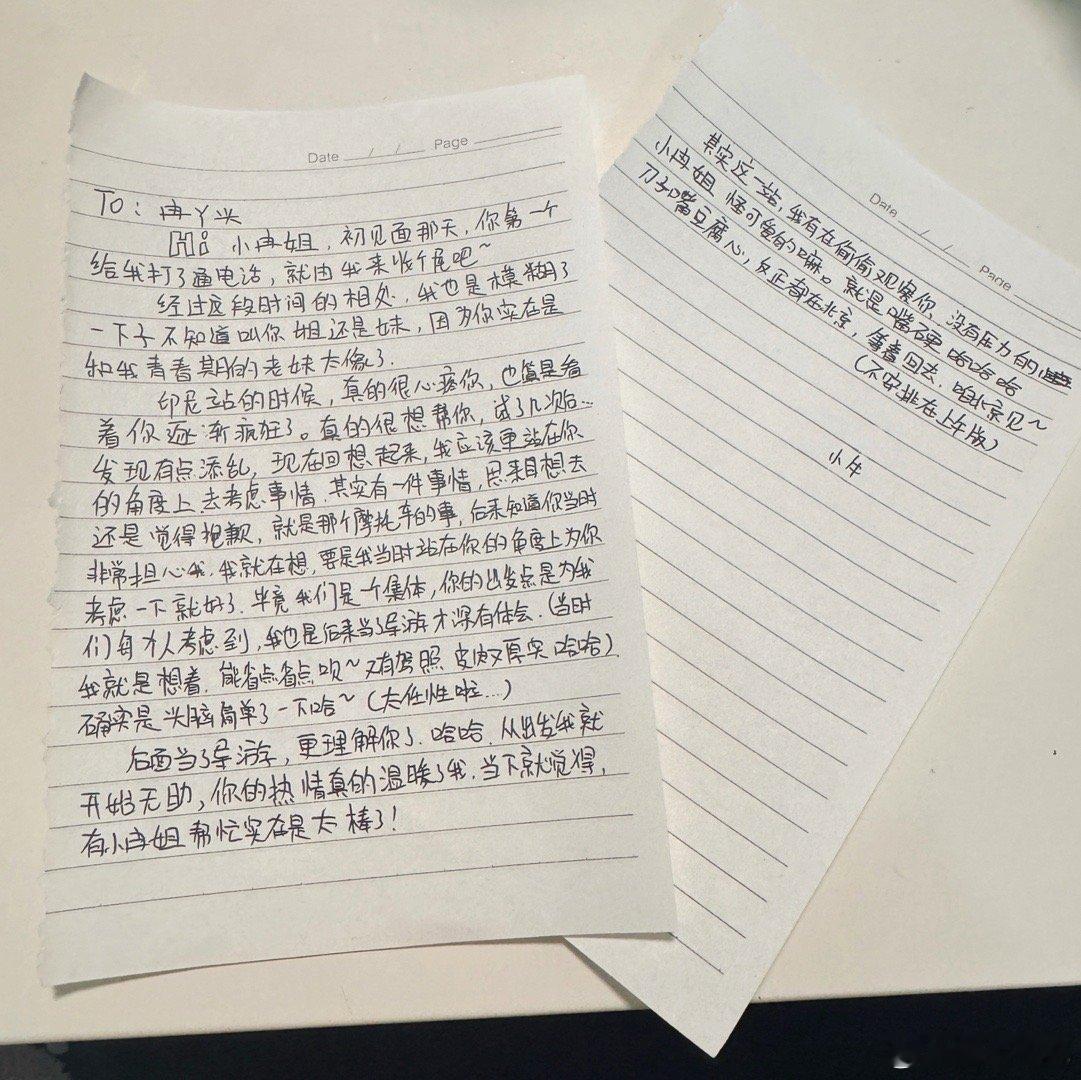 Date / / Page
TO：冉丫头
Hi 小冉姐，初见面那天，你第一个
给我打了通电话，就由我来收个尾吧~
经过这段时间的相处，我也是模糊了
一下子不知道叫你姐还是妹，因为你实在是
和我青春期的老妹太像了.
印尼站的时候，真的很心疼你，也算是看
着你逐渐疯狂了。真的很想帮你，试了几次后...
发现有点添乱，现在回想起来，我应该更站在你
的角度上去考虑事情.其实有一件事情，思来想去
还是觉得抱歉，就是那个摩托车的事，后来知道你当时
非常担心我.我就在想，要是我当时站在你的角度上为你
考虑一下就好了.毕竟我们是一个集体，你的出发点是为我
们每个人考虑到，我也是后来当了导游才深有体会.(当时
我就是想着.能省点省点呗~又有驾照 皮肉又厚实 哈哈)
确实是头脑简单了一下哈~(太任性啦...)
后面当了导游，更理解你了.哈哈.从出发我就
开始无助，你的热情真的温暖了我.当下就觉得，
有小冉姐帮忙实在是太棒了!
Date / / Page
其实这一站，我有在偷偷观察你、没有压力的
小冉姐 怪可爱的嘛。就是嘴硬 哈哈哈
刀子嘴豆腐心，反正都在北京，等着回去，咱北京见~
(不安排在上午版)
小年